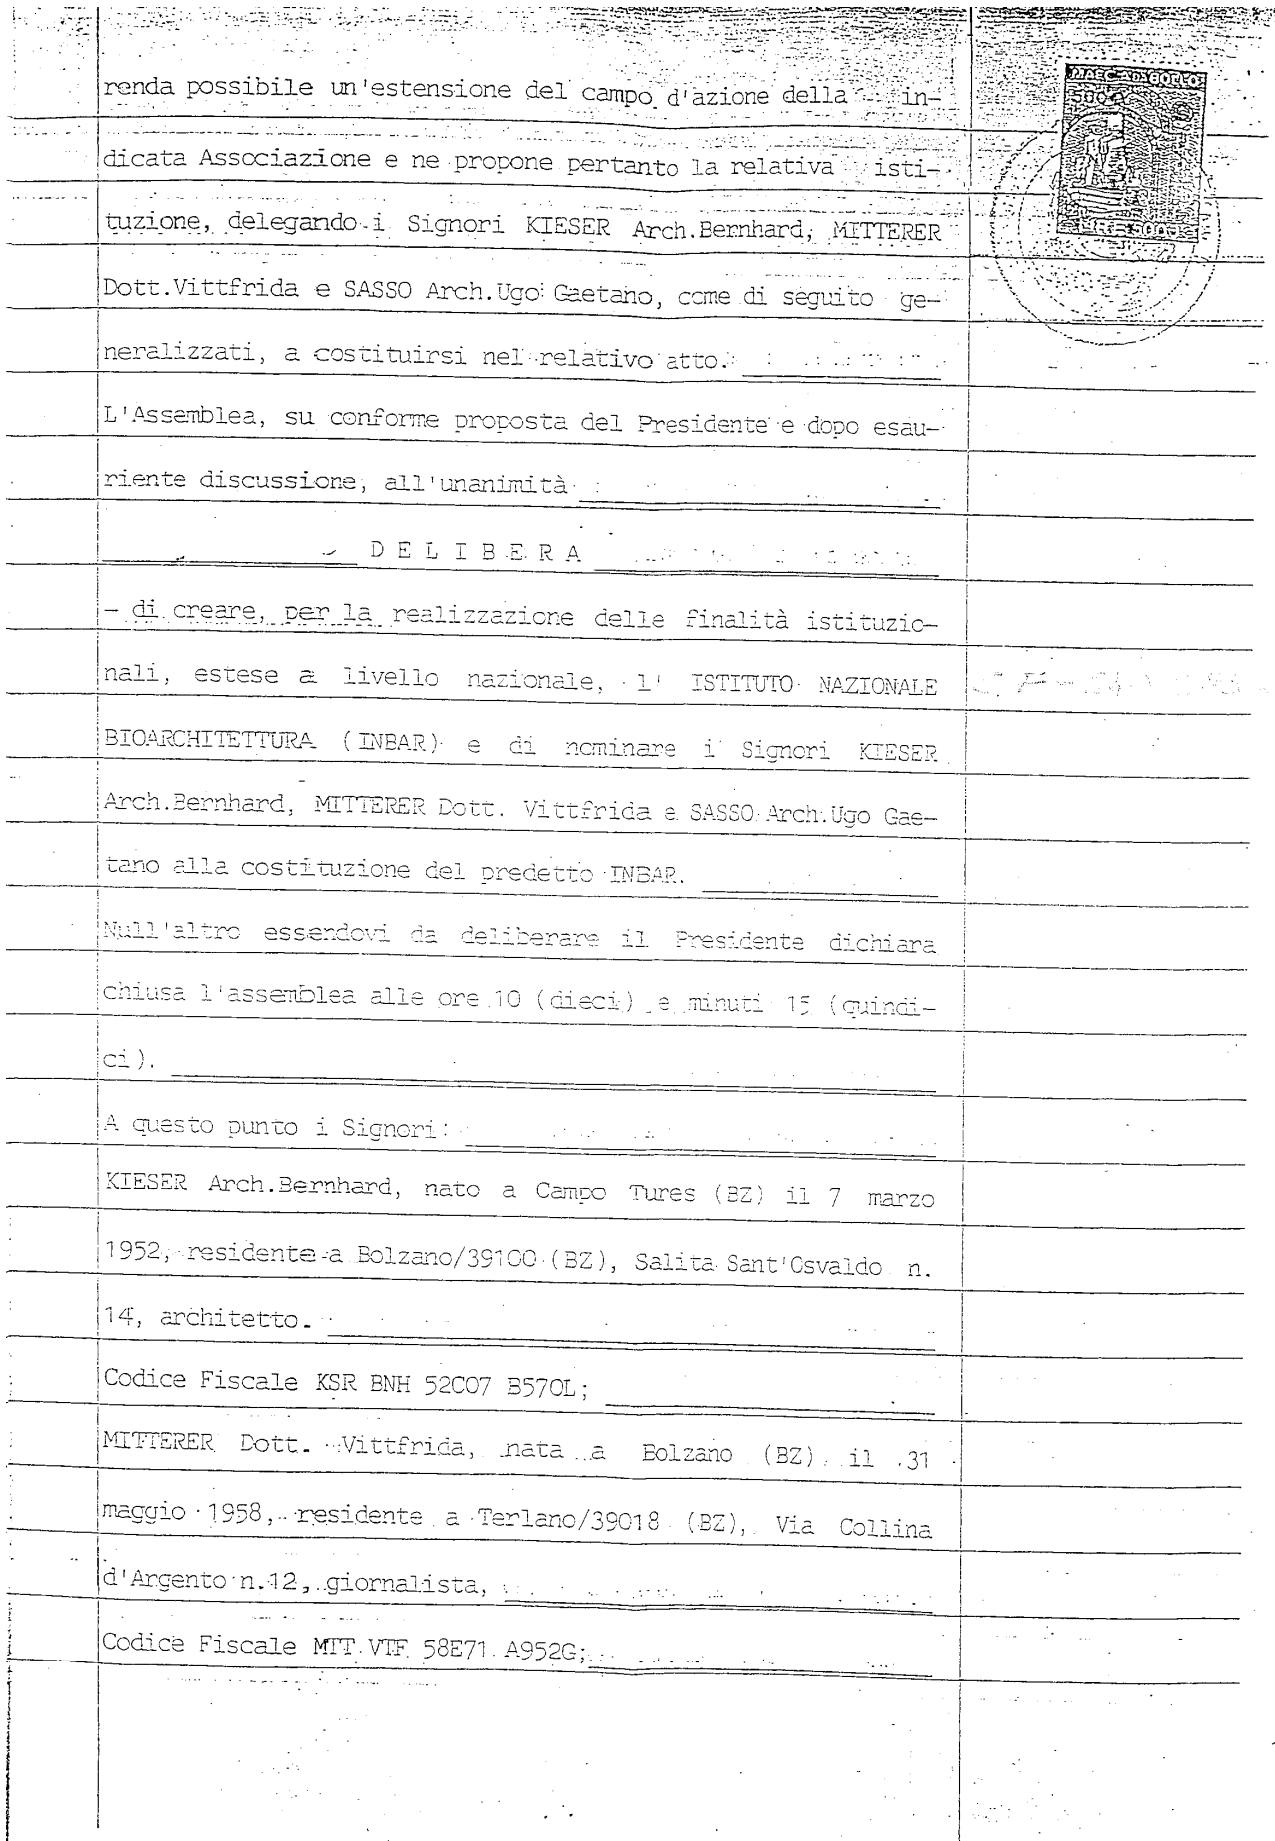 renda possibile un'estensione del campo d'azione della in-
dicata Associazione e ne propone pertanto la relativa isti-
tuzione, delegando i Signori KIESER Arch.Bernhard, MITTERER
Dott.Vittfrida e SASSO Arch.Ugo Gaetano, come di seguito ge-
neralizzati, a costituirsi nel relativo atto.
L'Assemblea, su conforme proposta del Presidente e dopo esau-
riente discussione, all'unanimità
D E L I B E R A
- di creare, per la realizzazione delle finalità istituzio-
nali, estese a livello nazionale, l' ISTITUTO NAZIONALE
BIOARCHITETTURA (INBAR) e di nominare i Signori KIESER
Arch.Bernhard, MITTERER Dott. Vittfrida e SASSO Arch.Ugo Gae-
tano alla costituzione del predetto INBAR.
Null'altro essendovi da deliberare il Presidente dichiara
chiusa l'assemblea alle ore 10 (dieci) e minuti 15 (quindi-
ci).
A questo punto i Signori:
KIESER Arch.Bernhard, nato a Campo Tures (BZ) il 7 marzo
1952, residente a Bolzano/39100 (BZ), Salita Sant'Osvaldo n.
14, architetto.
Codice Fiscale KSR BNH 52C07 B570L;
MITTERER Dott. Vittfrida, nata a Bolzano (BZ) il 31
maggio 1958, residente a Terlano/39018 (BZ), Via Collina
d'Argento n.12, giornalista,
Codice Fiscale MIT VTF 58E71 A952G;